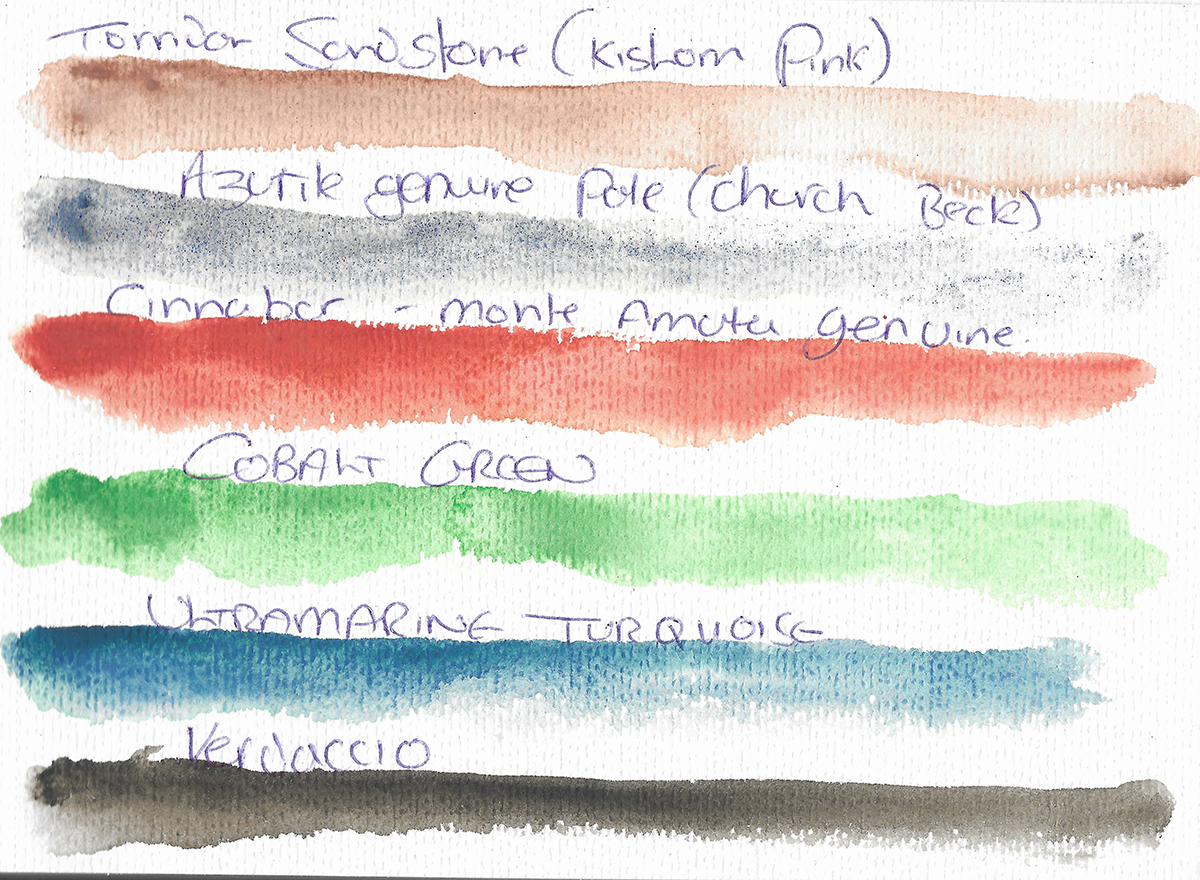 Torridon Sandstone (Kishorn Pink)
Azurite genuine Pale (Church Beck)
Cinnabar - monte Amata genuine.
COBALT GREEN
ULTRAMARINE TURQUOISE
Verdaccio